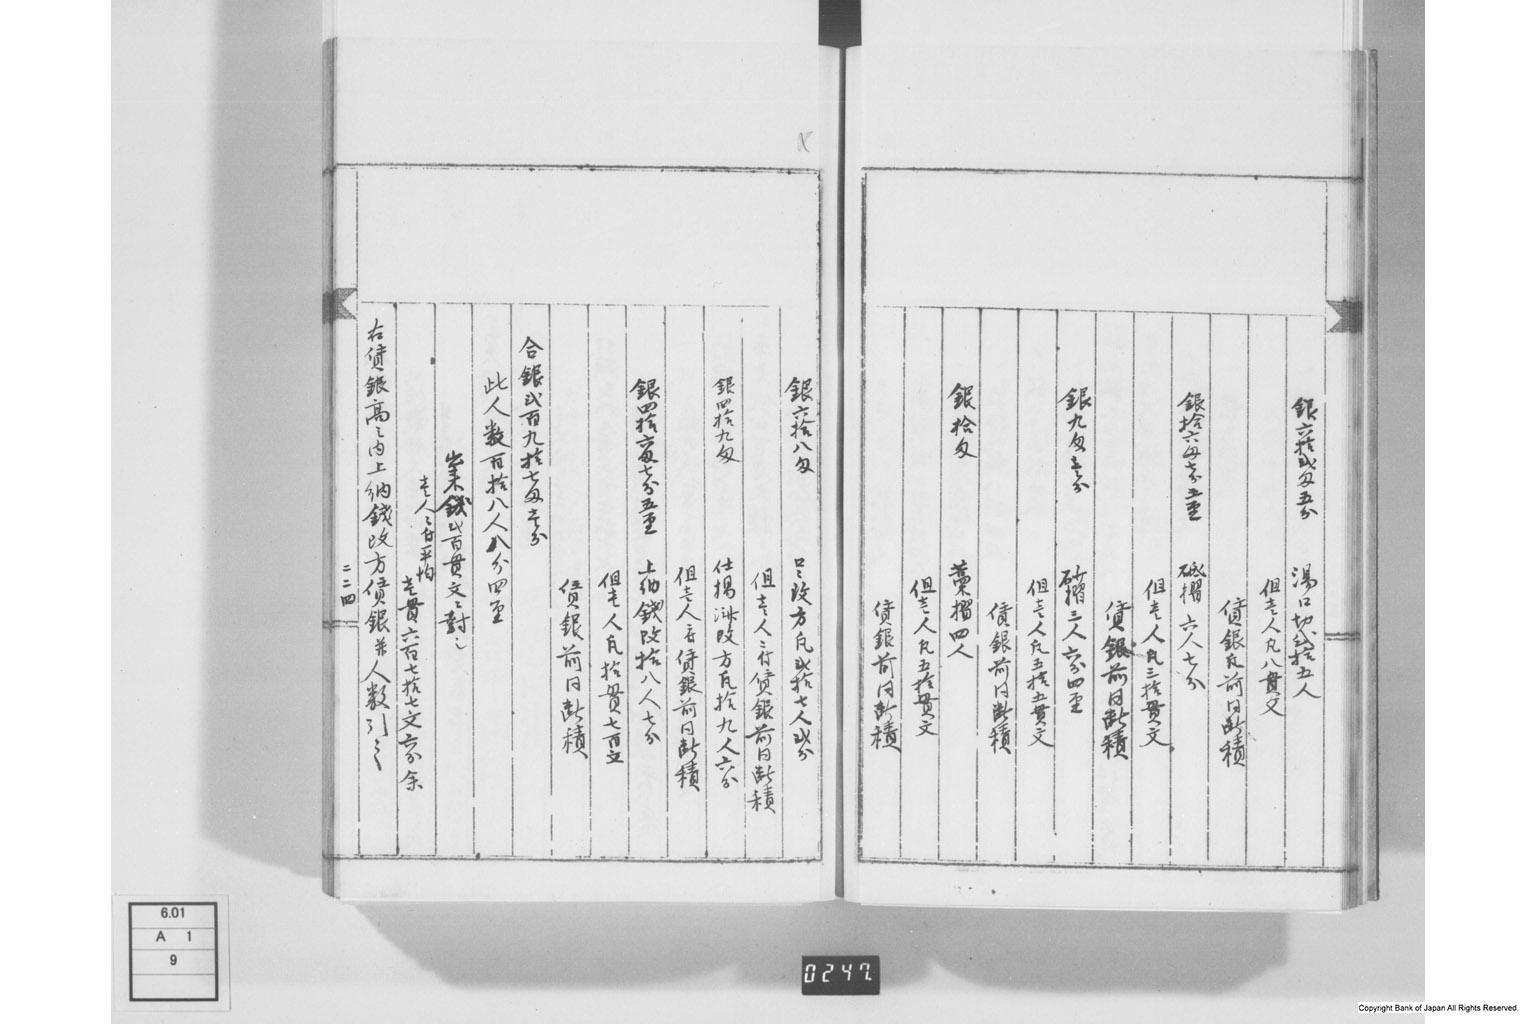 銀六拾弐匁五分　湯口切弐拾五人
但壱人ニ凡八貫文
賃銀凡前同断積
銀拾六匁七分五厘　砥摺六人七分
但壱人凡三拾貫文
賃銀前同断積
銀九匁壱分　砂摺三人六分四厘
但壱人凡五拾五貫文
賃銀前同断積
銀拾匁　藁摺四人
但壱人凡五拾貫文
賃銀前同断積
銀六拾八匁　改方凡弐拾七人弐分
但壱人ニ付賃銀前同断積
銀四拾九匁　仕揚改方凡拾九人六分
但壱人ニ付賃銀前同断積
銀四拾六匁七分五厘　上納銭改拾八人七分
但壱人凡拾貫七百文
賃銀前同断積
合銀弐百九拾七匁壱分
此人数百拾八人八分四厘
出来銭弐百貫文ニ対シ
壱人ニ付平均
壱貫六百七拾七文六分余
右賃銀高之内上納銭改方賃銀并人数引之
二二四
0247
6.01
A 1
9
Copyright Bank of Japan All Rights Reserved.